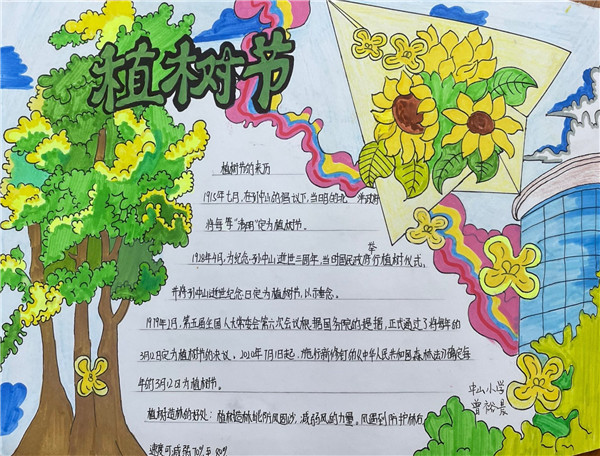 植树节
植树节的来历
1915年七月,在孙中山的倡议下,当时的北洋政府
将每年"清明"定为植树节。
1928年4月,为纪念孙中山逝世三周年,当时国民政府举行植树仪式,
并将孙中山逝世纪念日定为植树节,以示悼念。
1979年2月,第五届全国人大常委会第六次会议根据国务院的提请,正式通过了将每年的
3月12日定为植树节的决议。2020年7月1日起,施行新修订的《中华人民共和国森林法》明确每
年的3月12日为植树节。
植树造林的好处:植树造林能防风固沙,减弱风的力量。风遇到防护林
速度可减弱70%至80%
中山小学
曾裕